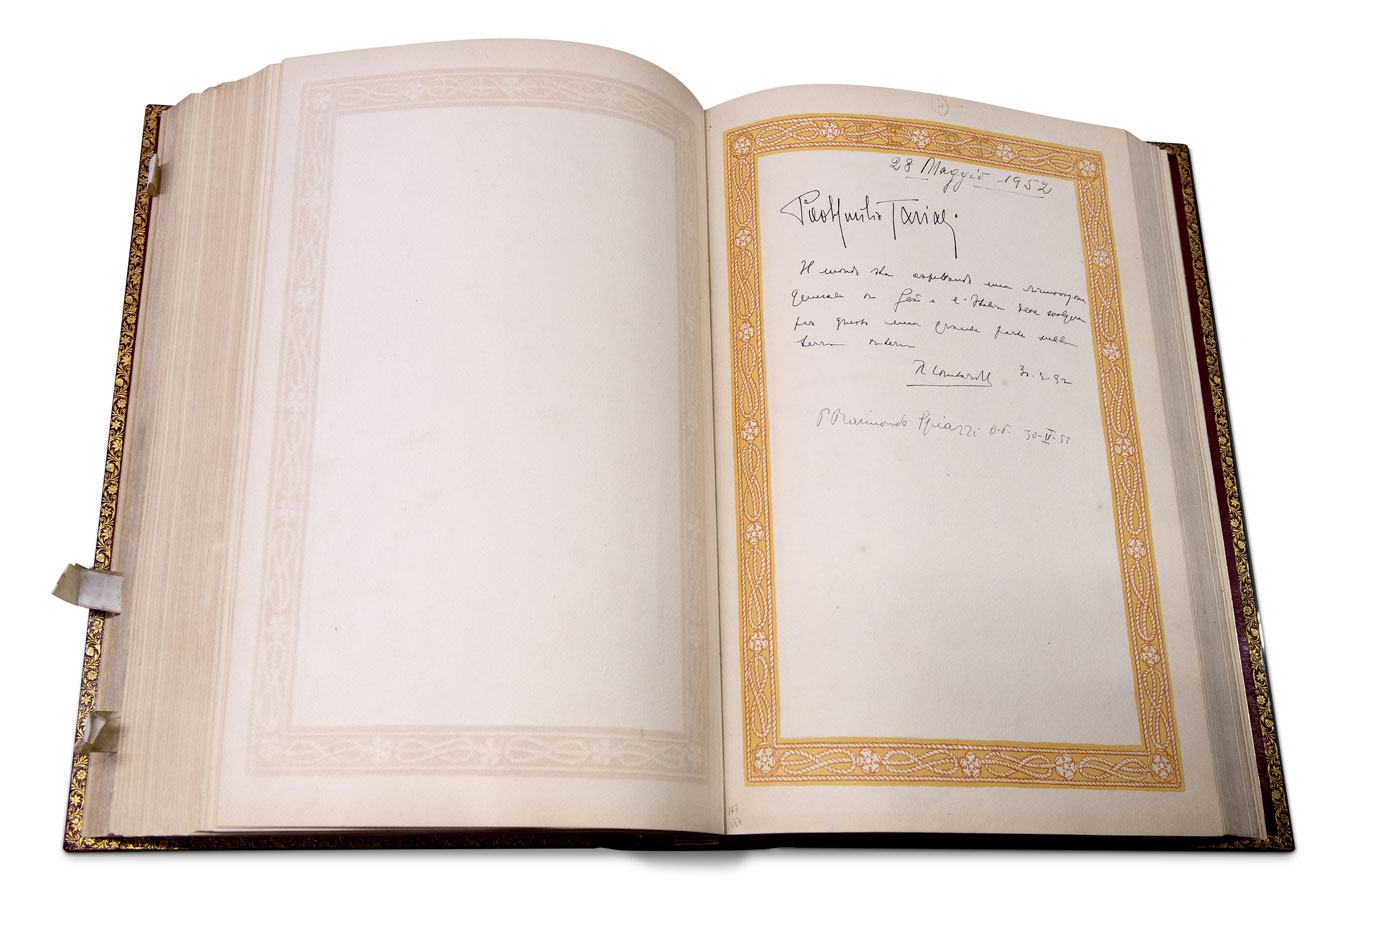 H
FERT
28 Maggio 1952
Paolo Emilio Taviani
Il mondo sta aspettando una rinnovazione
generale in Gesù e l'Italia deve svolgere
per questo una grande parte nella
terra intera
R Lombardi 30.5.52
P. Raimondo Spiazzi O.P. 30-V-52